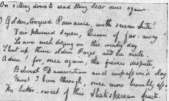 On sitting down to read King Lear once again
O golden tongued Romance, with serene Lute!
Fair plumed Syren, Queen of far-away!
Leave melodizing on this wintry day
Shut up thine olden Pages, and be mute.
Adieu! for, once again, the fierce dispute,
Betwixt Damnation and impassion'd clay
Must I burn through; once more humbly
The bitter sweet of this Shakespearean fruit